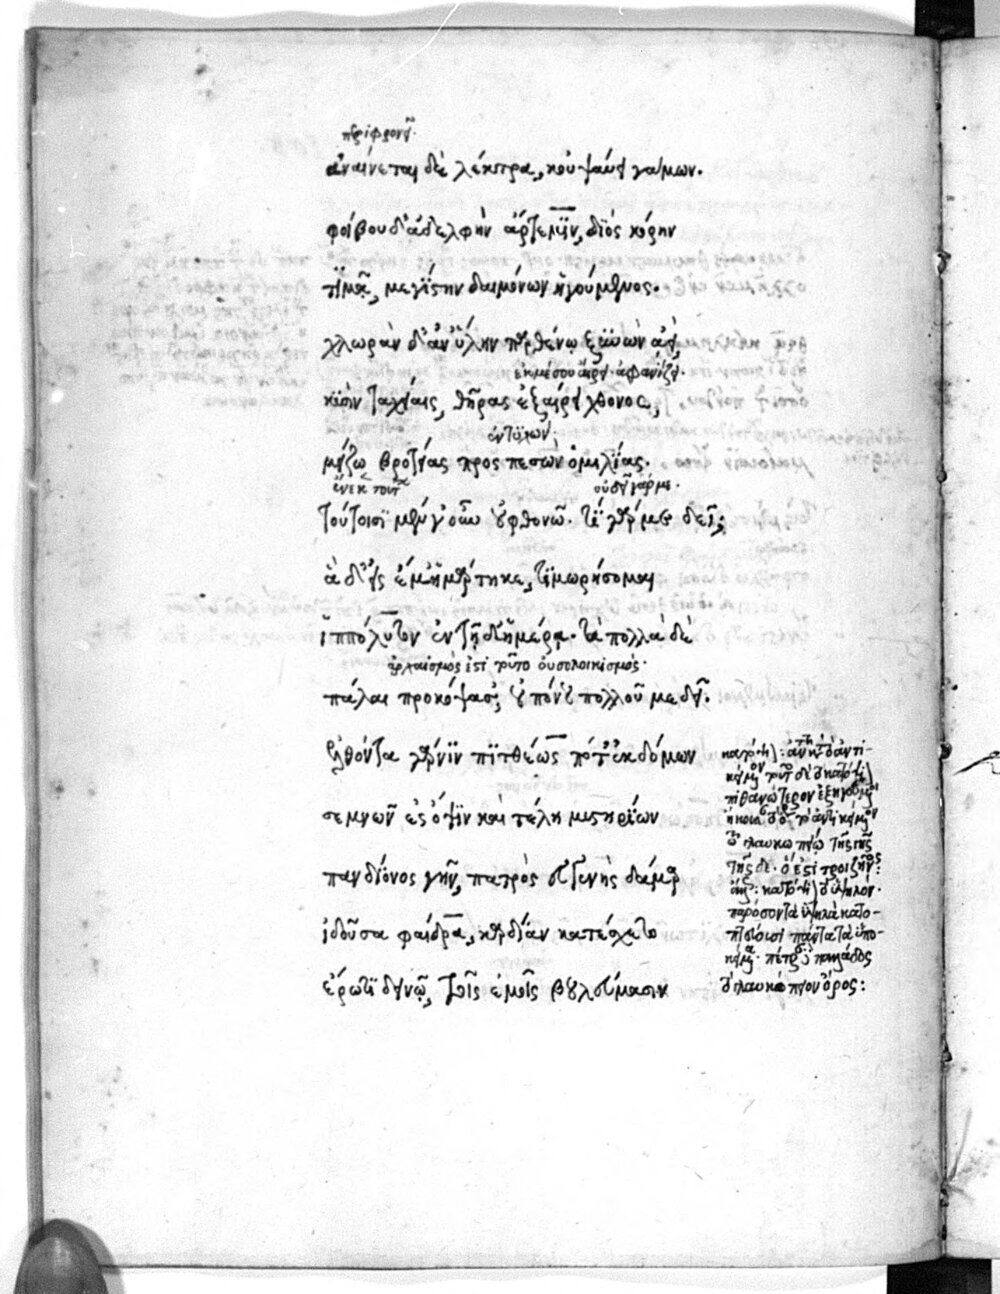 περιφρονεῖ·
ἀναίνεται δὲ λέκτρα, κοὐ ψαύει γάμων·
φοίβου δ' ἀδελφὴν ἄρτεμιν, διὸς κόρην
τιμᾷ, μεγίστην δαιμόνων ἡγούμενος·
χλωρὰν δ' ἀν' ὕλην παρθένῳ ξυνὼν ἀεὶ
ἐκ μέσου αἴρει· ἀφανίζει·
κυσὶν ταχείαις, θῆρας ἐξαιρεῖ χθονός,
ἐντυχών·
μείζω βροτείας προσπεσὼν ὁμιλίας·
ἕνεκα τούτου οὐδὲν γάρ με·
τούτοισι μέν νυν οὐ φθονῶ· τί γάρ με δεῖ;
ἃ δ' εἰς ἔμ' ἡμάρτηκε, τιμωρήσομαι
ἱππόλυτον ἐν τῇδ' ἡμέρᾳ· τὰ πολλὰ δὲ
ἀρχαϊσμός ἐστι τοῦτο οὐ σολοικισμός·
πάλαι προκόψασ', οὐ πόνου πολλοῦ με δεῖ·
ἐλθόντα γάρ νιν πιτθέως ποτ' ἐκ δόμων
σεμνῶν ἐς ὄψιν καὶ τέλη μυστηρίων
πανδίονος γῆν, πατρὸς εὐγενὴς δάμαρ
ἰδοῦσα φαίδρα, καρδίαν κατέσχετο
ἔρωτι δεινῷ, τοῖς ἐμοῖς βουλεύμασιν
κατόψιον: ἀντὶ τοῦ ἀντι-
κείμενον τοῦτο δὲ τὸ κατόψιον
πιθανώτερον ἐξηγούμενοι
τῆσδε· ὅ ἐστι τροιζῆνος:
κατόψιον ὑψηλόν·
παρόσον τὰ ὑψηλὰ κατο-
πτεύουσι πάντα τὰ ὑπο-
κείμενα· πέτραν παλλάδος
τὸ γλαυκώπιον ὄρος: